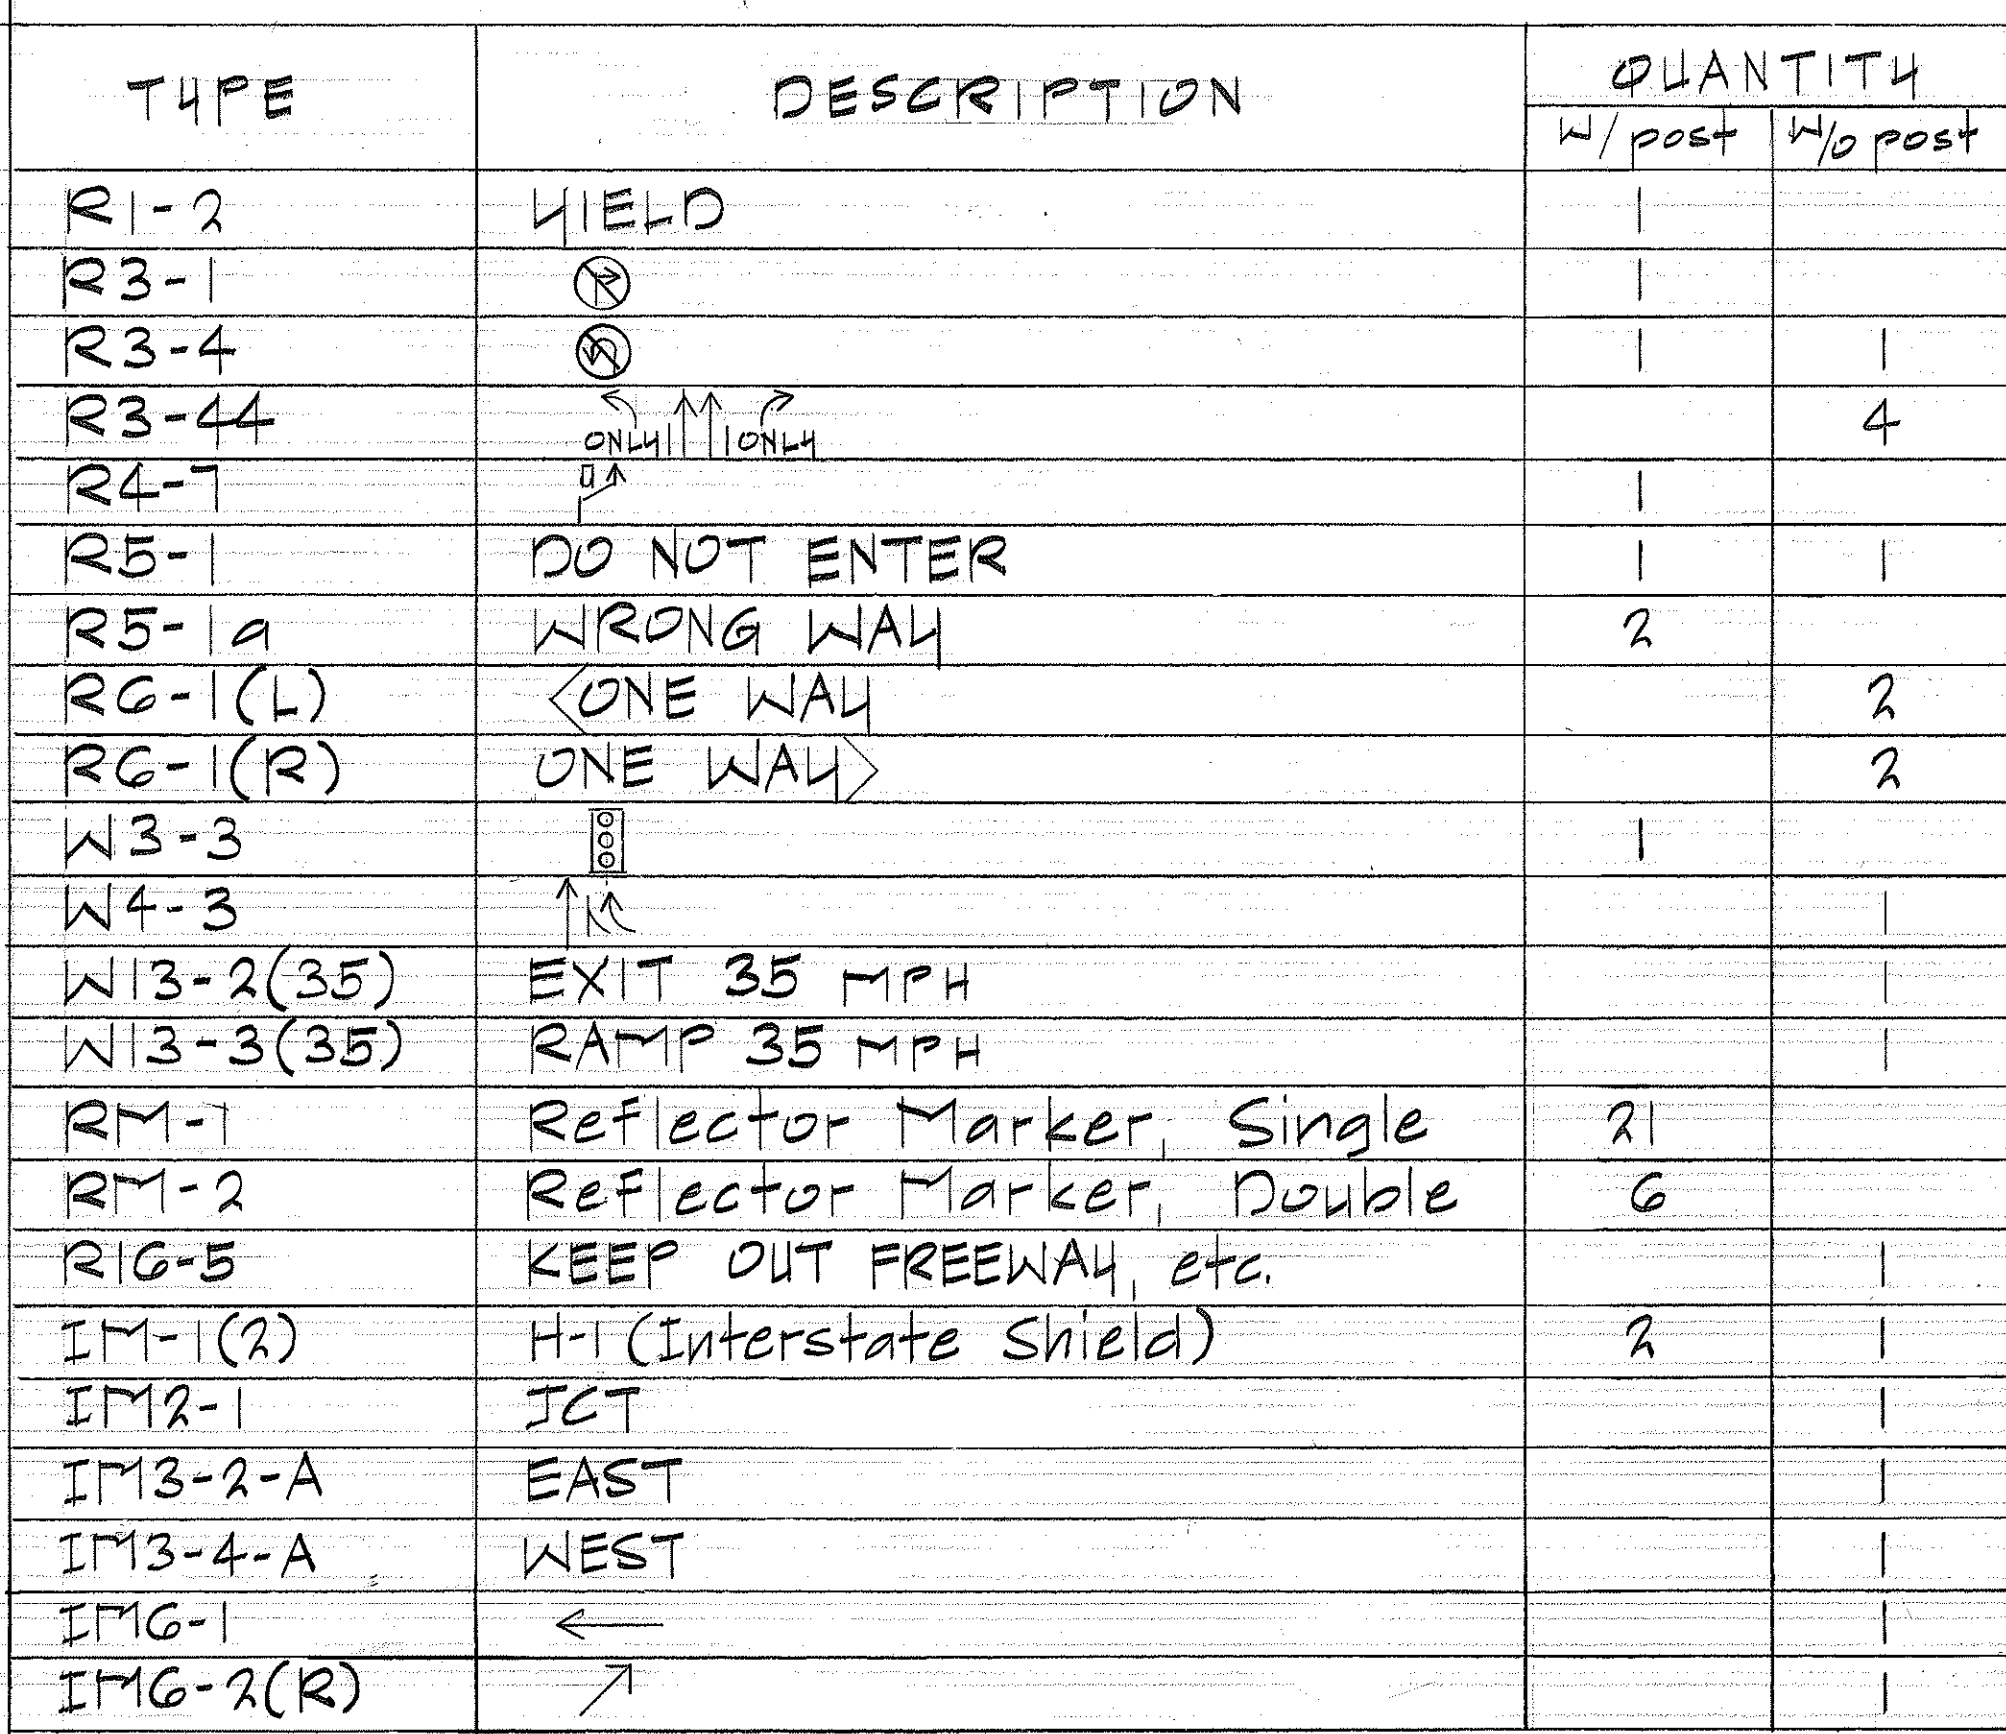 TYPE DESCRIPTION QUANTITY
W/ post W/o post
R1-2 YIELD 1
R3-1 1
R3-4 1 1
R3-44 ONLY ONLY 4
R4-7 1
R5-1 DO NOT ENTER 1 1
R5-1a WRONG WAY 2
R6-1(L) ONE WAY 2
R6-1(R) ONE WAY 2
W3-3 1
W4-3 1
W13-2(35) EXIT 35 MPH 1
W13-3(35) RAMP 35 MPH 1
RM-1 Reflector Marker, Single 21
RM-2 Reflector Marker, Double 6
R16-5 KEEP OUT FREEWAY, etc. 1
IM-1(2) H-1 (Interstate Shield) 2 1
IM2-1 JCT 1
IM3-2-A EAST 1
IM3-4-A WEST 1
IM6-1 ← 1
IM6-2(R) ↗ 1